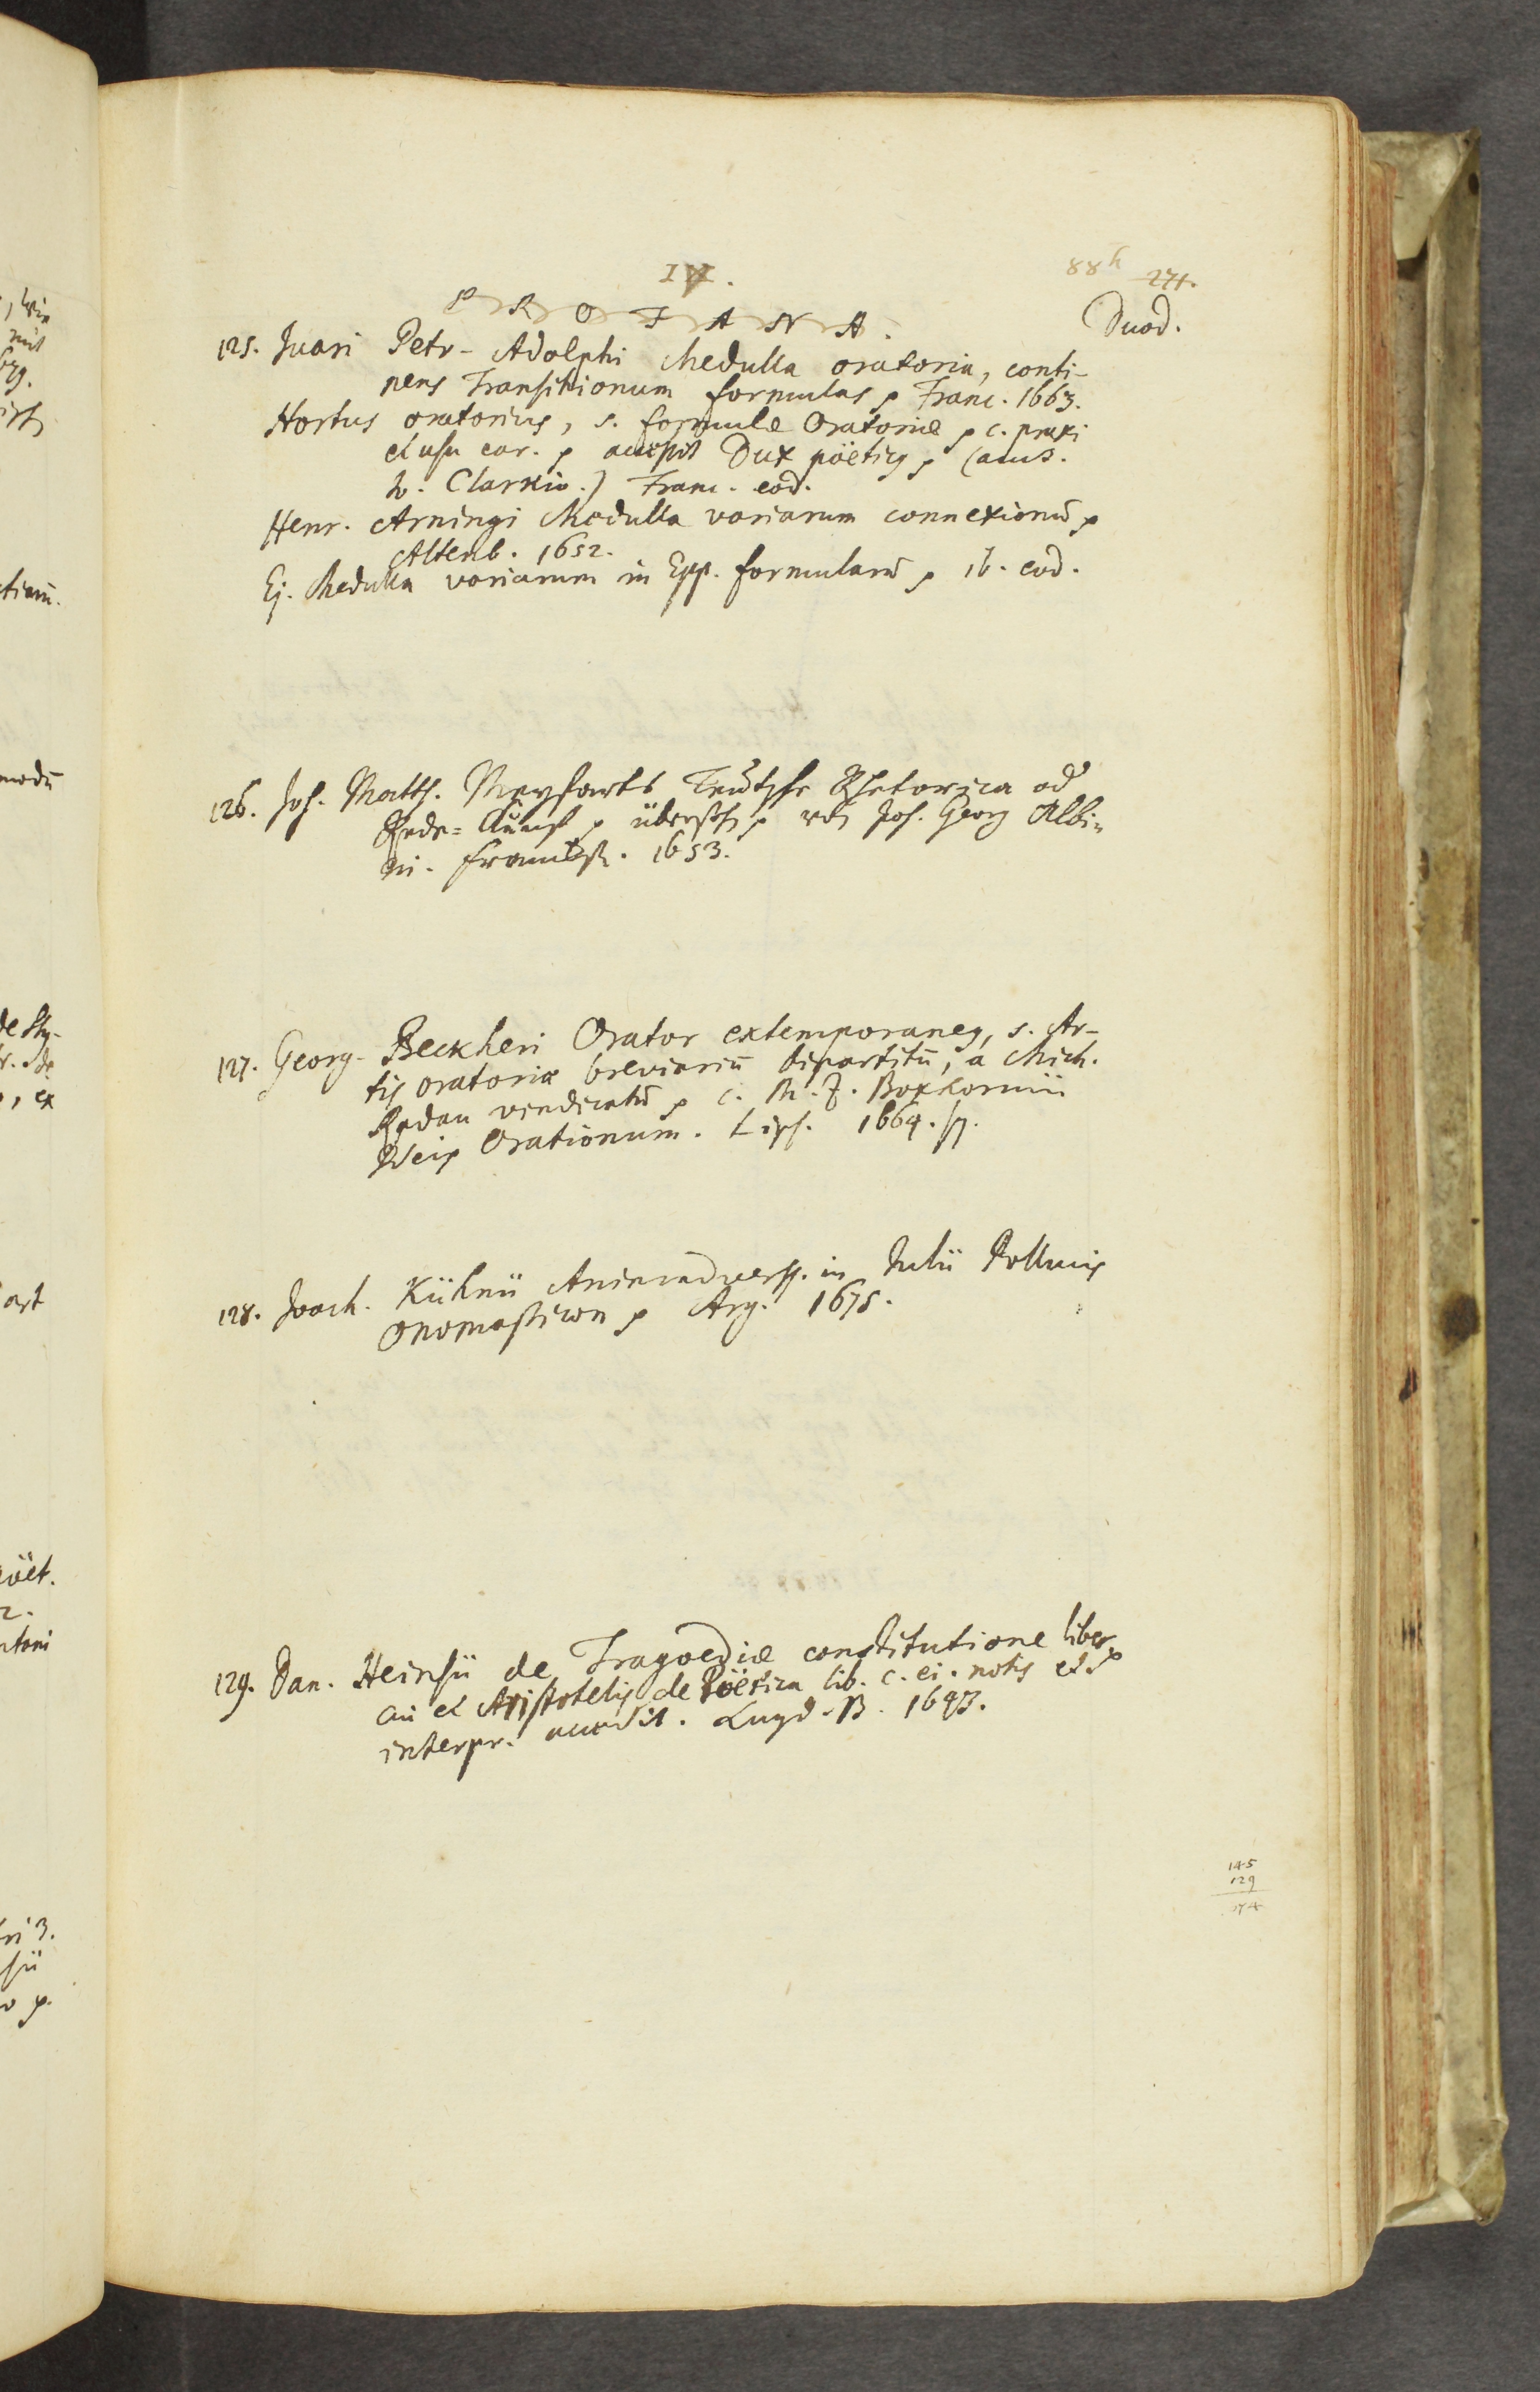 IV.
88h 274.
PROFANA.
Duod.
125. Juari Petr. Adolphi Medulla oratoria, conti-
nens Transitionum formulas p Franc. 1663.
Hortus oratorius, s. formulæ Oratoriæ p c. praxi
et usu ear. p accessit Dux poëticg p (auct.
Clarkio.) Franc. eod.
Henr. Arningi Medulla variarum connexionū p
Altenb. 1652.
Ej. Medulla variarum in Epp. formularū p ib. eod.
126. Joh. Matth. Meyfarts Teutsche Rhetorica od
Rede-Kunst p übersehen p von Joh. Georg Albi-
ni. Franckf. 1653.
127. Georg. Beckheri Orator extemporaneg, s. Ar-
tis oratoriæ breviariū bipartitū, a Mich.
Redau vindicatū p c. M. Z. Boxhornii
Ideis Orationum. Lips. 1664.
128. Joach. Kühnii Animadverss. in Julii Pollucis
Onomasticon p Arg. 1675.
129. Dan. Heinsii de Tragoediæ constitutione liber p
cui et Aristotelis de Poëtica lib. c. ei. notis et
interpr. accedit. Lugd. B. 1643.
145
129
274